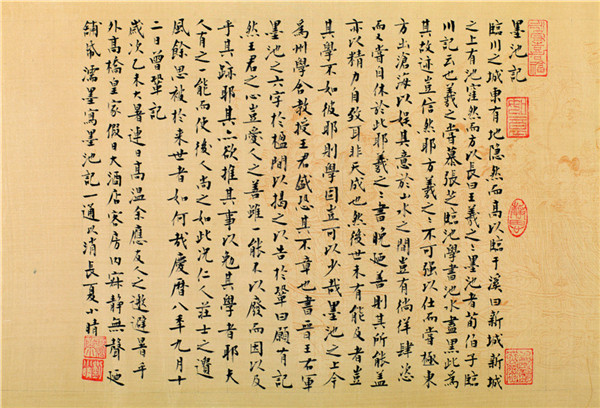 墨池記
臨川之城東有地隐然而高以臨于溪曰新城新城
之上有池窪然而方以長曰王羲之之墨池者荀伯子臨
川記云也羲之嘗慕張芝臨池學書池水盡黑此為
其故迹豈信然耶方羲之之不可强以仕而嘗極東
方出滄海以娱其意於山水之間豈有徜徉肆恣
而又嘗自休於此耶羲之之書晚廼善則其所能蓋
亦以精力自致耳非天成也然後世未有能及者豈
其學不如彼耶則學固豈可以少哉墨池之上今
為州學舍教授王君盛恐其不章也書晉王右軍
墨池之六字於楹間以揭之以告於鞏曰願有記
然王君之心豈愛人之善雖一能不以廢而因以及
乎其跡耶其亦欲推其事以勉其學者耶夫
人有之能而使後人尚之如此况仁人莊士之遺
風餘思被於來世者如何哉慶曆八年九月十
二日曾鞏記
歲次乙未大暑連日高温余應友人之邀避暑平
外高橋皇家假日大酒店客房内寂静無聲廼
舖紙濡墨寫墨池記一通以消長夏小晴